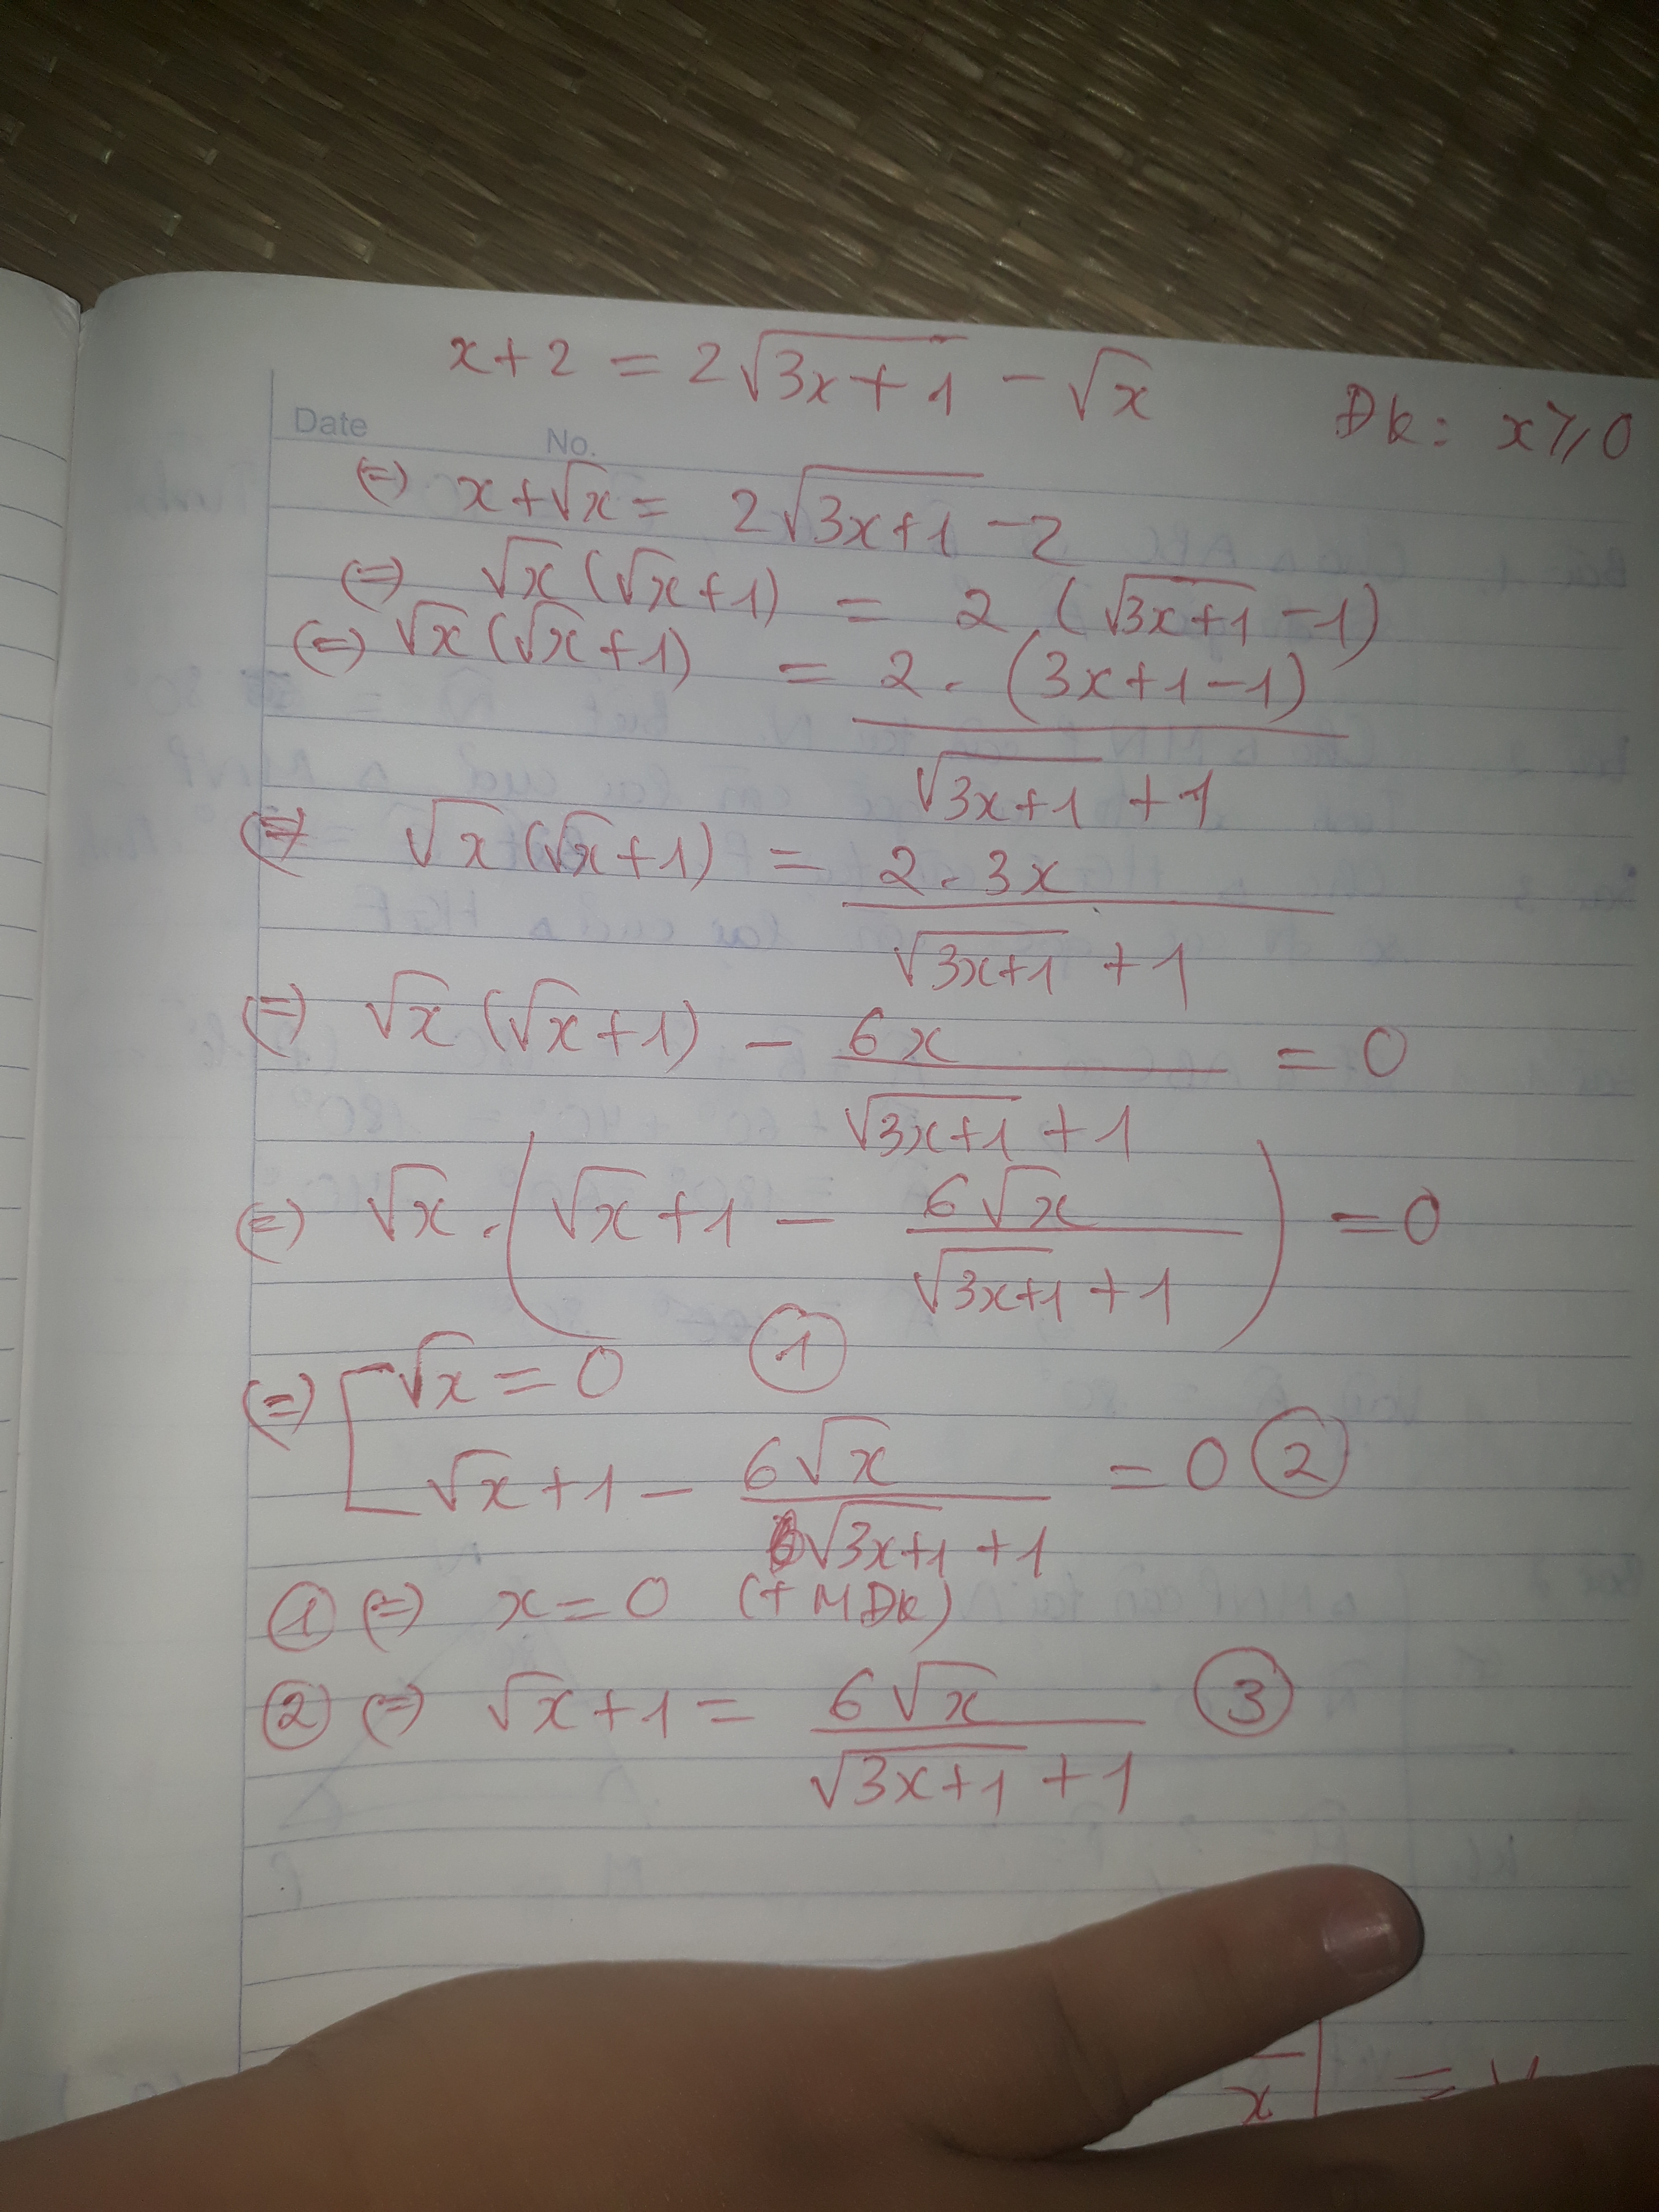 x+2 = 2√(3x+1) - √x   Đk: x⩾0
Date   No.
(=) x+√x = 2√(3x+1) - 2
(=) √x (√x+1) = 2 (√(3x+1) - 1)
(=) √x (√x+1) = 2. (3x+1-1) / (√(3x+1) + 1)
(=) √x (√x+1) = 2. 3x / (√(3x+1) + 1)
(=) √x (√x+1) - 6x / (√(3x+1) + 1) = 0
(=) √x . (√x+1 - 6√x / (√(3x+1) + 1)) = 0
(=) [ √x = 0   ①
√x+1 - 6√x / (√(3x+1) + 1) = 0 ②
① (=) x = 0 (TMĐk)
② (=) √x+1 = 6√x / (√(3x+1) + 1)   ③